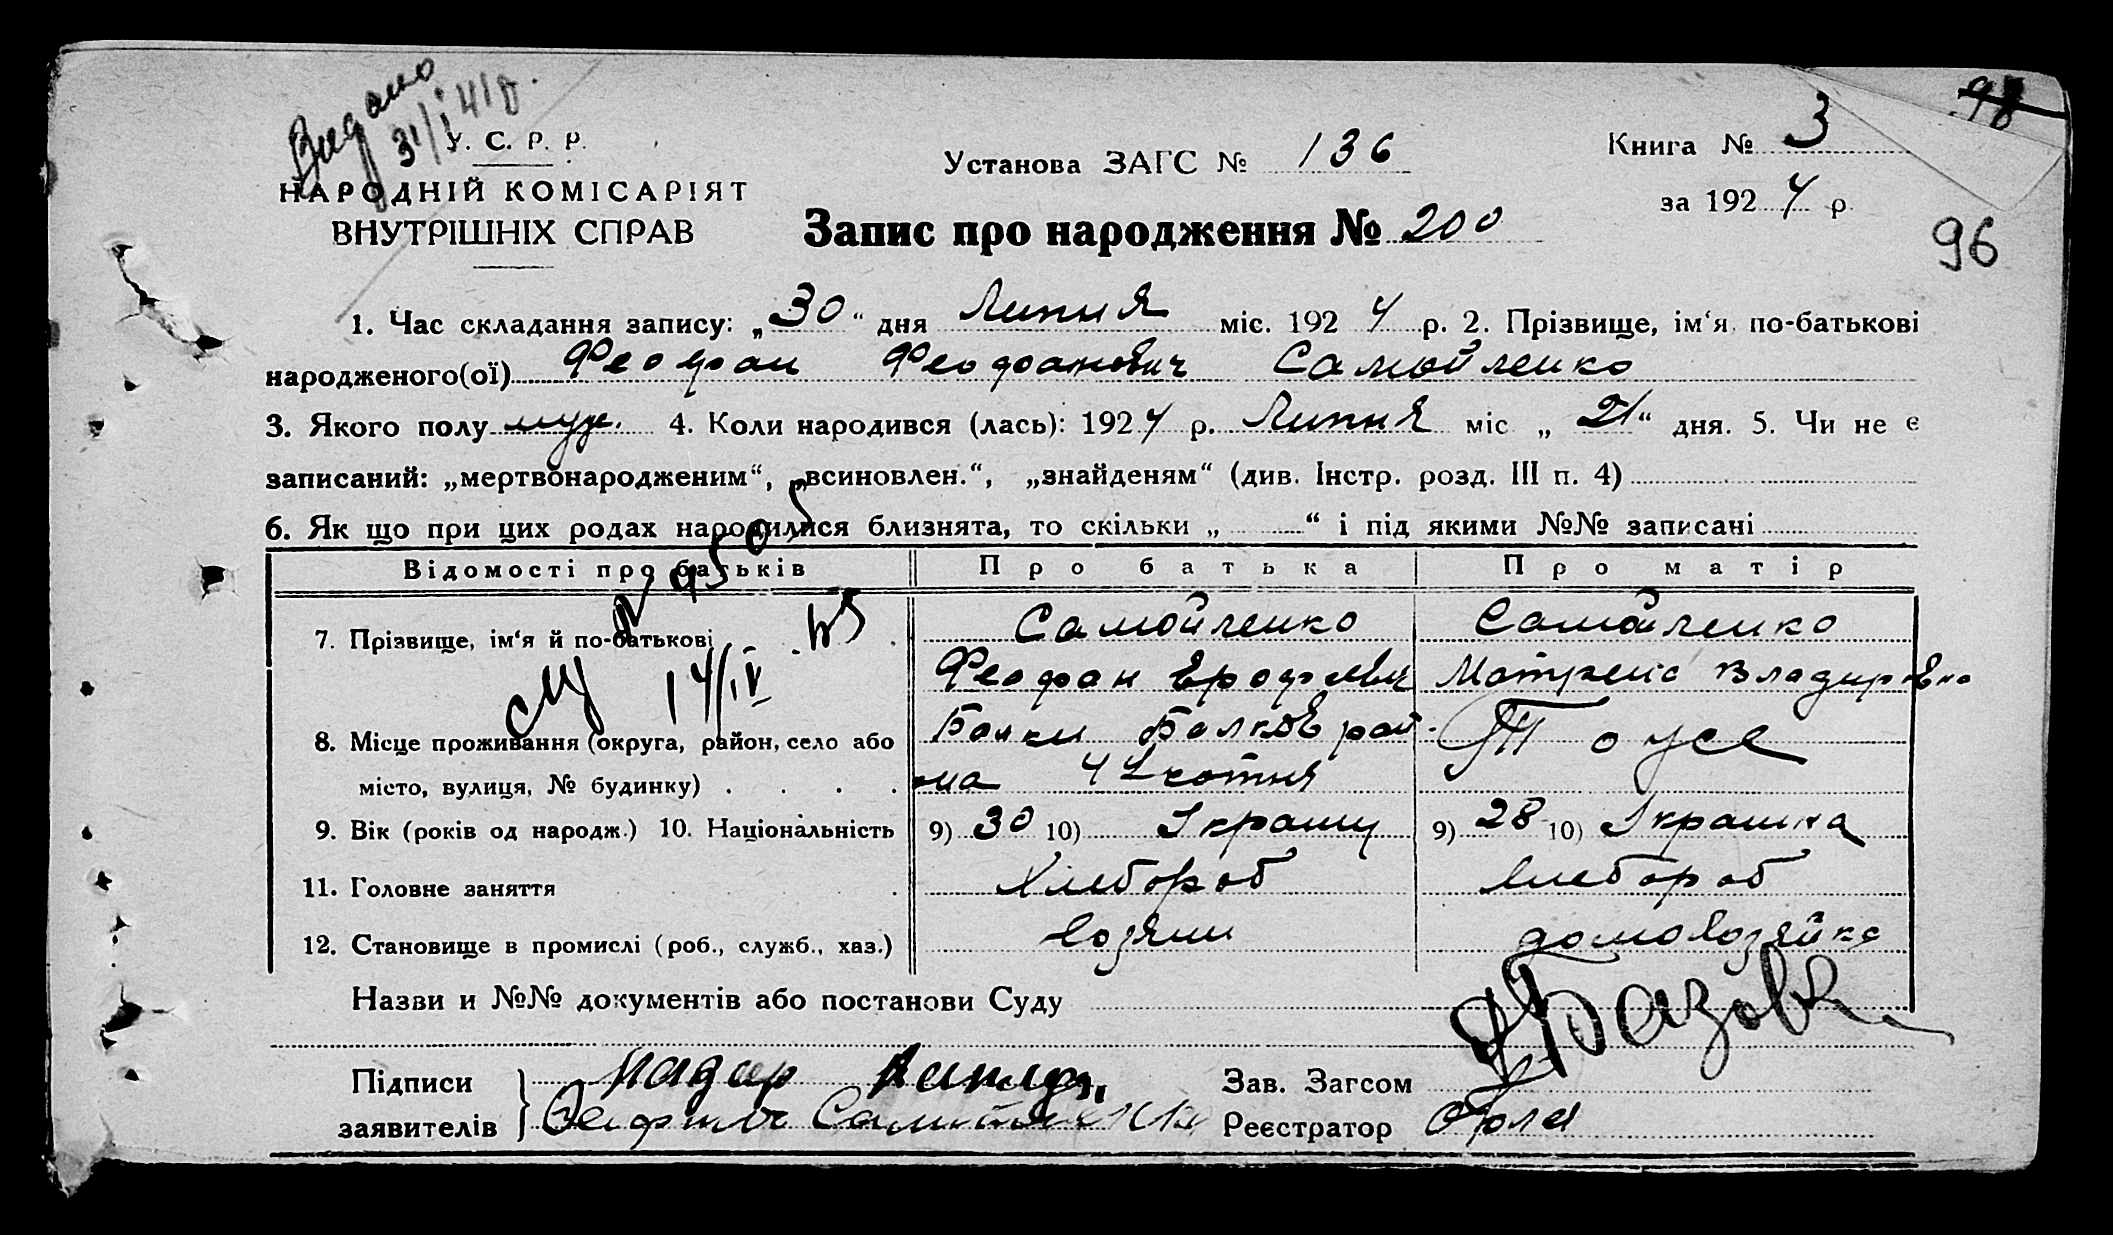 Видано 31/I 41 р.
98
У. С. Р. Р.
НАРОДНІЙ КОМІСАРІЯТ
ВНУТРІШНІХ СПРАВ
Установа ЗАГС № 136
Книга № 3
за 1924 р.
Запис про народження № 200
96
1. Час складання запису: „30“ дня Липня міс. 1924 р. 2. Прізвище, ім‘я, по-батькові
народженого(ої) Феофан Феофанович Самойленко
3. Якого полу муж. 4. Коли народився (лась): 1924 р. Липня міс „21“ дня. 5. Чи не є
записаний: „мертвонародженим“, „всиновлен.“, „знайденям“ (див. Інстр. розд. III п. 4)
6. Як що при цих родах народилися близнята, то скільки „ “ і під якими №№ записані
Відомості про батьків Про батька Про матір
7. Прізвище, ім‘я й по-батькові Самойленко Самойленко
Феофан Матрена
14/IV
8. Місце проживання (округа, район, село або Балки Балков рай Тоже
місто, вулиця, № будинку) сотня
9. Вік (років од народж.) 10. Національність 9) 30 10) 9) 28 10)
11. Головне заняття Хлебороб Хлебороб
12. Становище в промислі (роб., служб., хаз.) хозяин домохозяйка
Назви и №№ документів або постанови Суду
Підписи
заявителів Самойленко
Зав. Загсом
Реєстратор